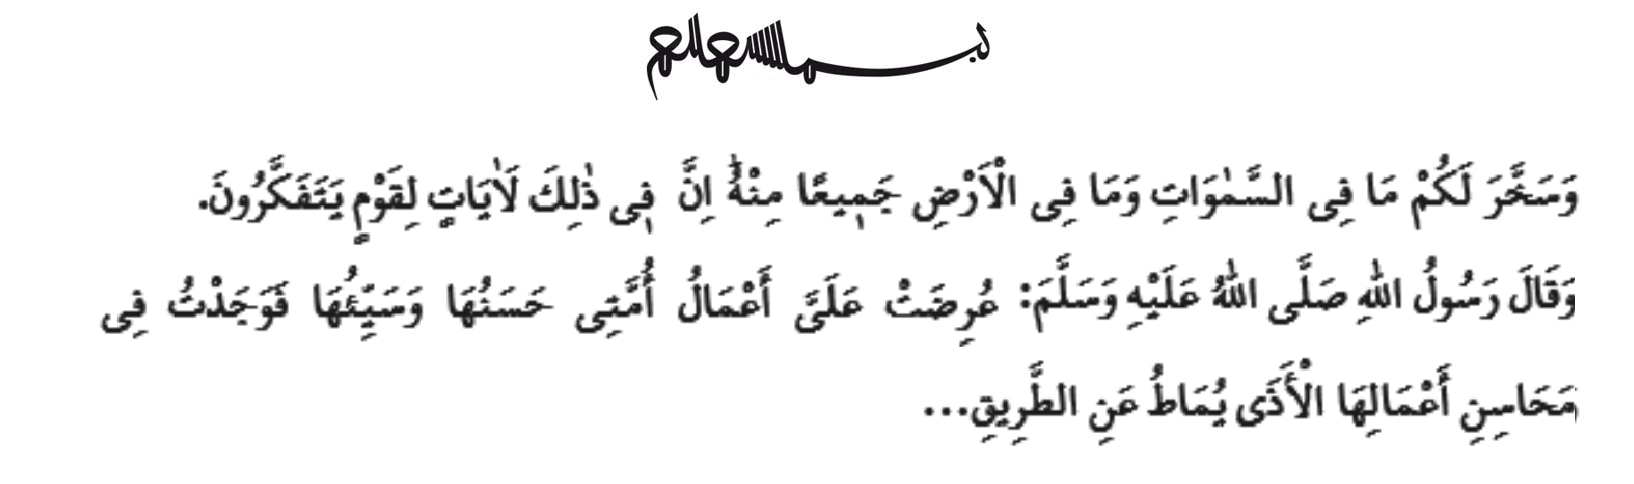 بسم الله الرحمن الرحيم
وَسَخَّرَ لَكُمْ مَا فِى السَّمٰوَاتِ وَمَا فِى الْاَرْضِ جَمٖيعًا مِنْهُؕ اِنَّ فٖى ذٰلِكَ لَاٰيَاتٍ لِقَوْمٍ يَتَفَكَّرُونَ.
وَقَالَ رَسُولُ اللّٰهِ صَلَّى اللّٰهُ عَلَيْهِ وَسَلَّمَ: عُرِضَتْ عَلَىَّ أَعْمَالُ أُمَّتِى حَسَنُهَا وَسَيِّئُهَا فَوَجَدْتُ فِى
مَحَاسِنِ أَعْمَالِهَا الْأَذَى يُمَاطُ عَنِ الطَّرِيقِ...